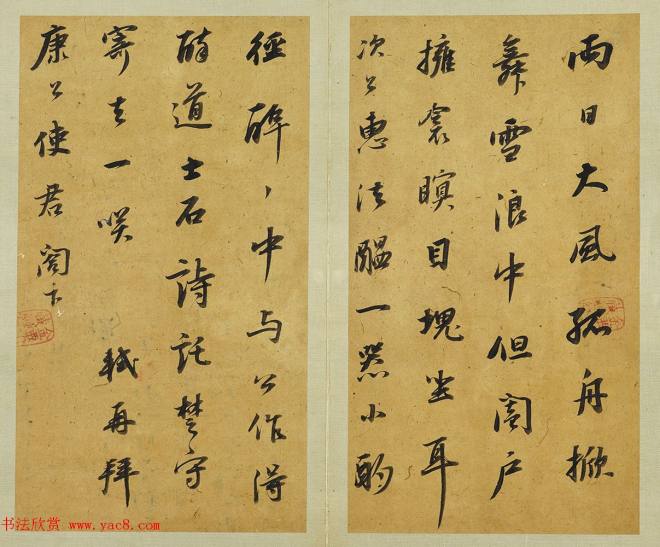 雨日大風孤舟掀
舞雪浪中但闔戶
擁衾瞑目塊坐耳
次公惠法醞一器小酌
徑醉〻中与公作得
醉道士石詩託楚守
寄去一咲 軾再拜
康公使君閣下
书法欣赏 www.yac8.com